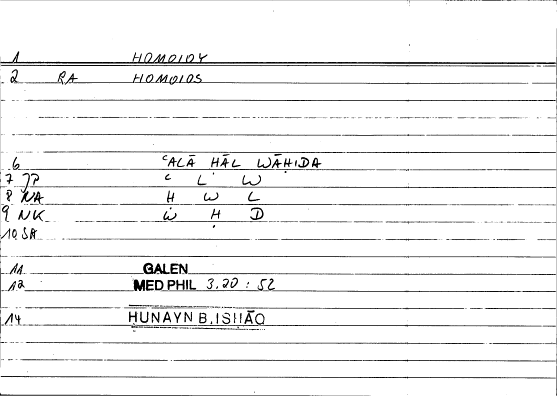 1 HOMOIOY
2 RA HOMOIOS
6 ʿALĀ ḤĀL WĀḤIDA
7 JP ʿ L W
8 NA H W L
9 NK W Ḥ D
10 SA
11 GALEN
12 MED PHIL 3.20 : 52
14 HUNAYN B. ISHĀQ